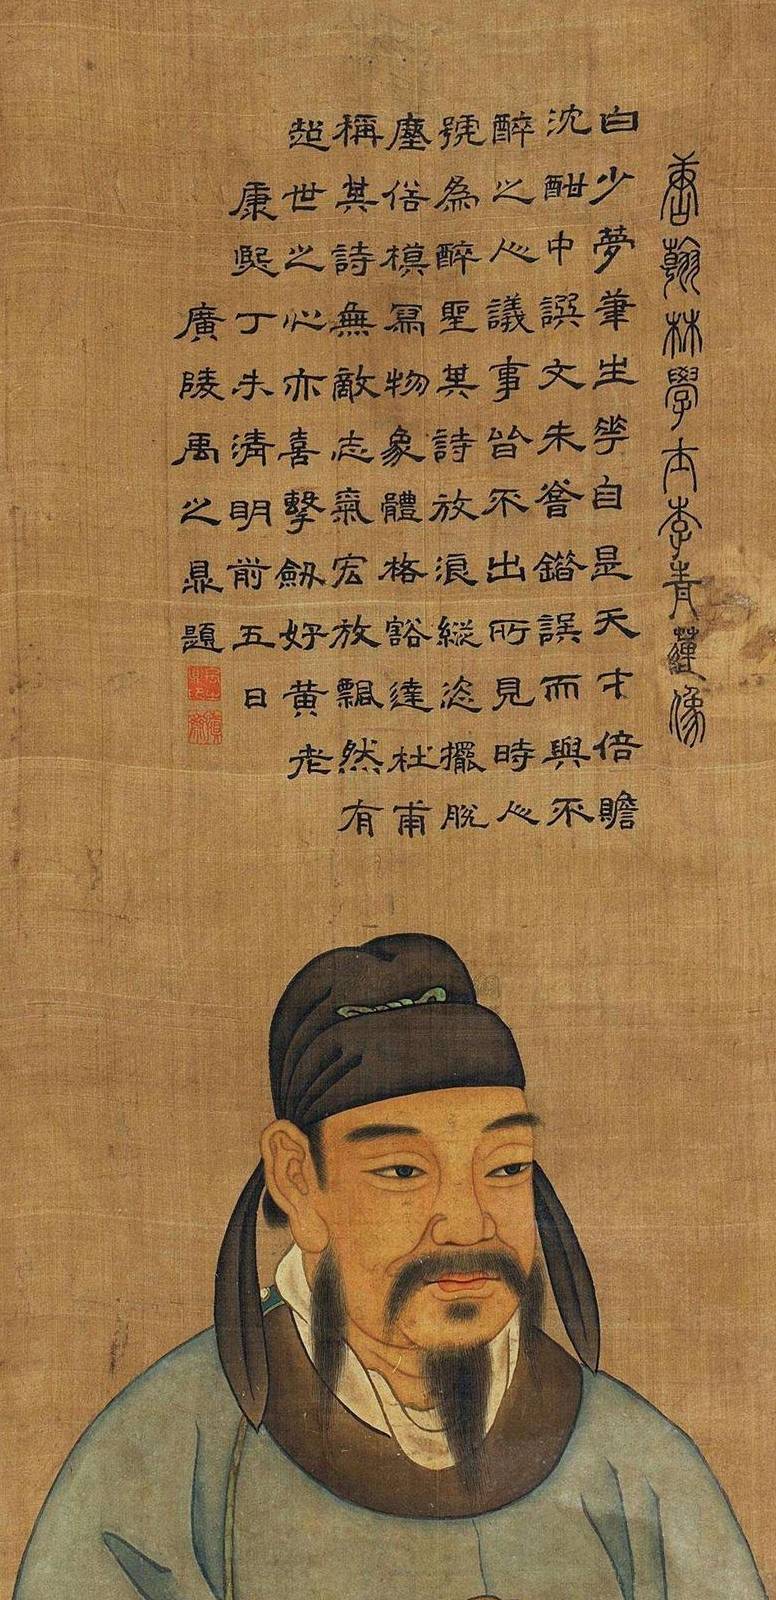 唐翰林學士李青蓮像
白少夢筆生華自是天才倍贍
沈酣中譔文未嘗錯誤而與不
醉之人議事皆不出所見時人
號為醉聖其詩放浪縱恣擺脫
塵俗模寫物象體格豁達杜甫
稱其詩無敵志氣宏放飄然有
超世之心亦喜擊劒好黃老
康熙丁未清明前五日
廣陵禹之鼎題